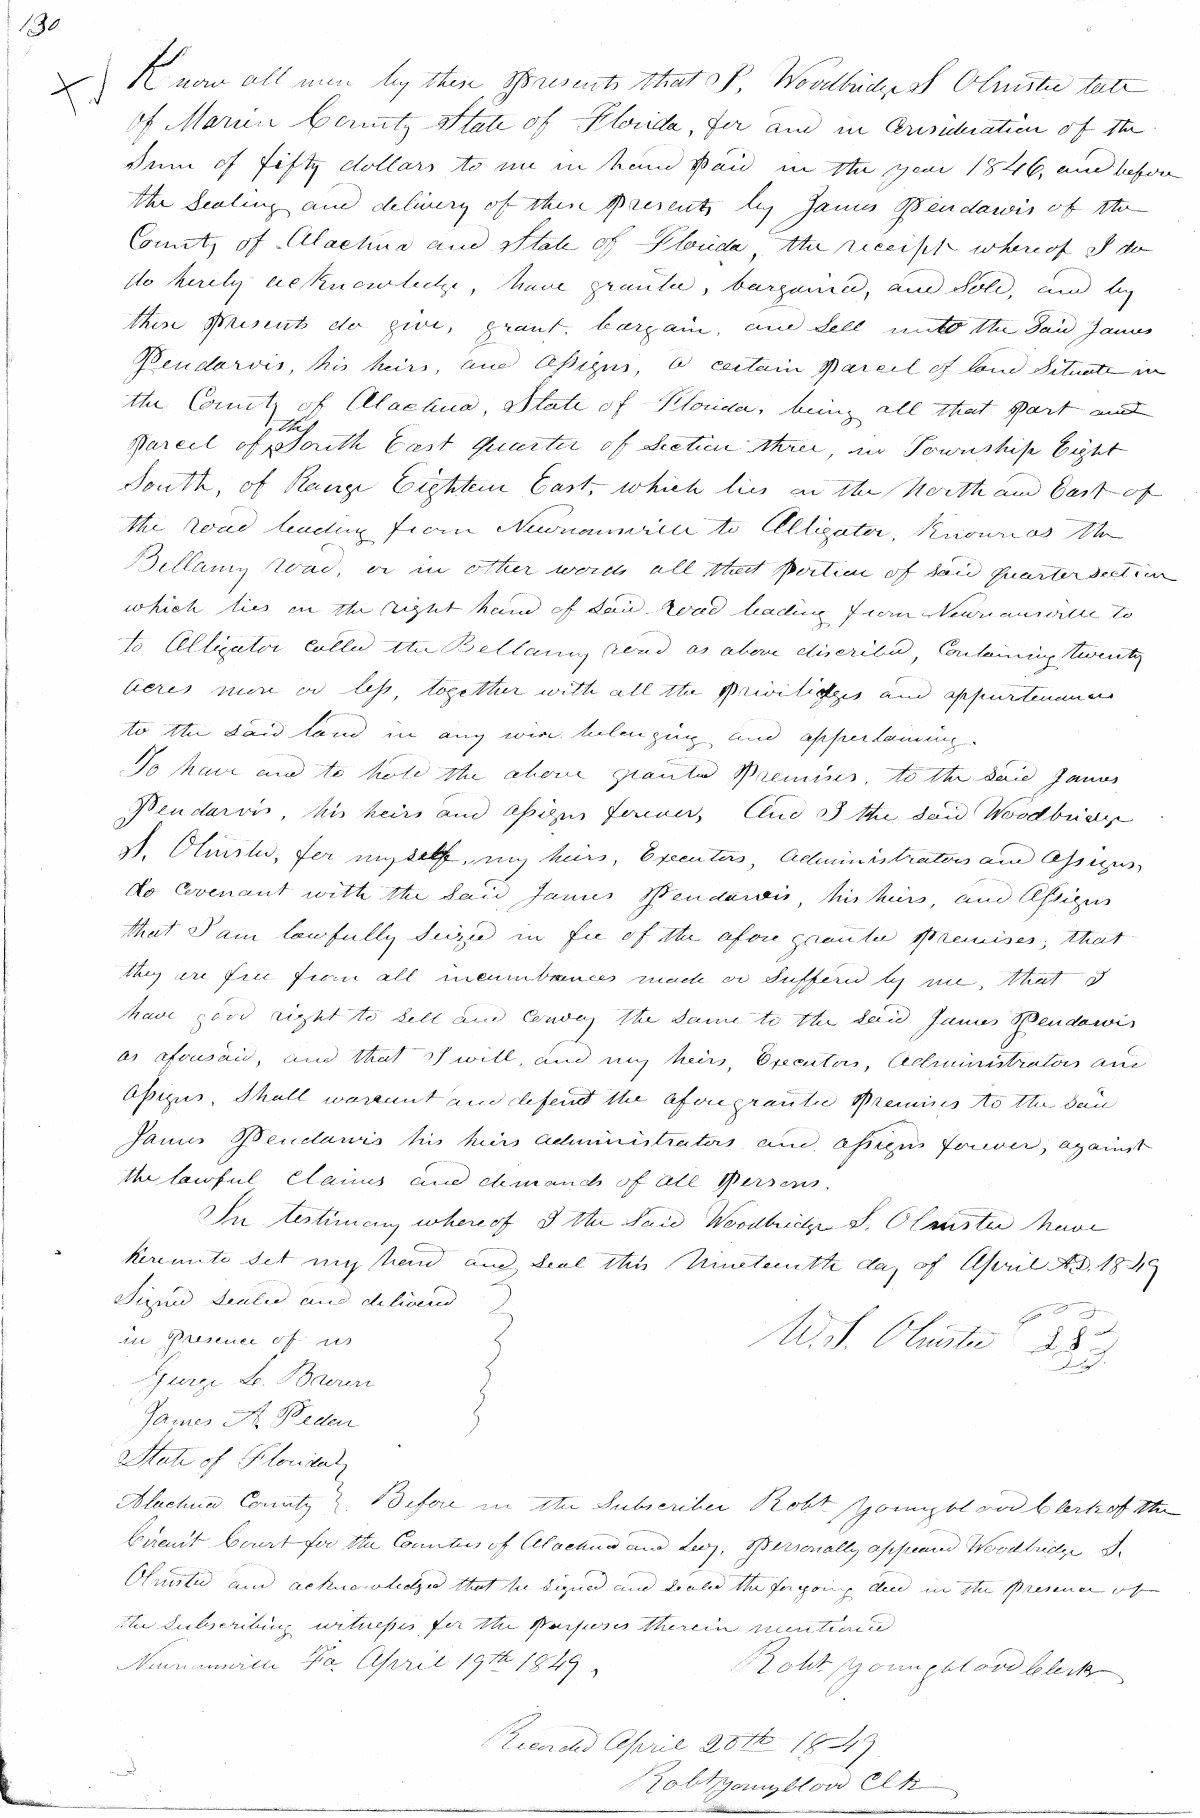 130
X
Know all men by these Presents that I, Woodbridge S Olmsted late
of Marion County State of Florida, for and in Consideration of the
Sum of fifty dollars to me in hand Paid in the year 1846, and before
the Sealing and delivery of these Presents by James Pendarvis of the
County of Alachua and State of Florida, the receipt whereof I do
do hereby acknowledge, have granted, bargained, and Sold, and by
these Presents do give, grant, bargain, and Sell unto the Said James
Pendarvis, his heirs, and Assigns, a certain Parcel of land Situate in
the County of Alachua, State of Florida, being all that Part and
Parcel of the South East quarter of Section three, in Township Eight
South, of Range Eighteen East, which lies on the North and East of
the road leading from Newnansville to Alligator, Known as the
Bellamy road, or in other words all that Portion of Said quarter section
which lies on the right hand of Said road leading from Newnansville to
to Alligator called the Bellamy road as above discribed, Containing twenty
acres more or less, together with all the Priviledges and appurtenances
to the Said land in any wise belonging and appertaining.
To have and to hold the above granted Premises, to the Said James
Pendarvis, his heirs and assigns forever, And I the Said Woodbridge
S. Olmsted, for myself, my heirs, Executors, Administrators and Assigns,
do Covenant with the Said James Pendarvis, his heirs, and Assigns
that I am lawfully Seized in fee of the afore granted Premises, that
they are free from all incumbrances made or Suffered by me, that I
have good right to Sell and Convey the Same to the Said James Pendarvis
as aforesaid, and that I will, and my heirs, Executors, Administrators and
Assigns, Shall warrant and defend the aforegranted Premises to the Said
James Pendarvis his heirs administrators and assigns forever, against
the lawful Claims and demands of all Persons.
In testimony whereof I the Said Woodbridge S. Olmsted have
hereunto set my hand and Seal this Nineteenth day of April A.D. 1849
Signed Sealed and delivered
in Presence of us
W. S. Olmsted
George L. Brown
James A Peden
State of Florida
Alachua County Before me the Subscriber Robt Youngblood Clerk of the
Circuit Court for the Counties of Alachua and Levy, Personally appeared Woodbridge S.
Olmsted and acknowledged that he Signed and Sealed the forgoing deed in the Presence of
the Subscribing witnesses for the Purposes therein mentioned
Newnansville Fa. April 19th 1849,
Robt Youngblood Clerk
Recorded April 20th 1849
Robt Youngblood Clk